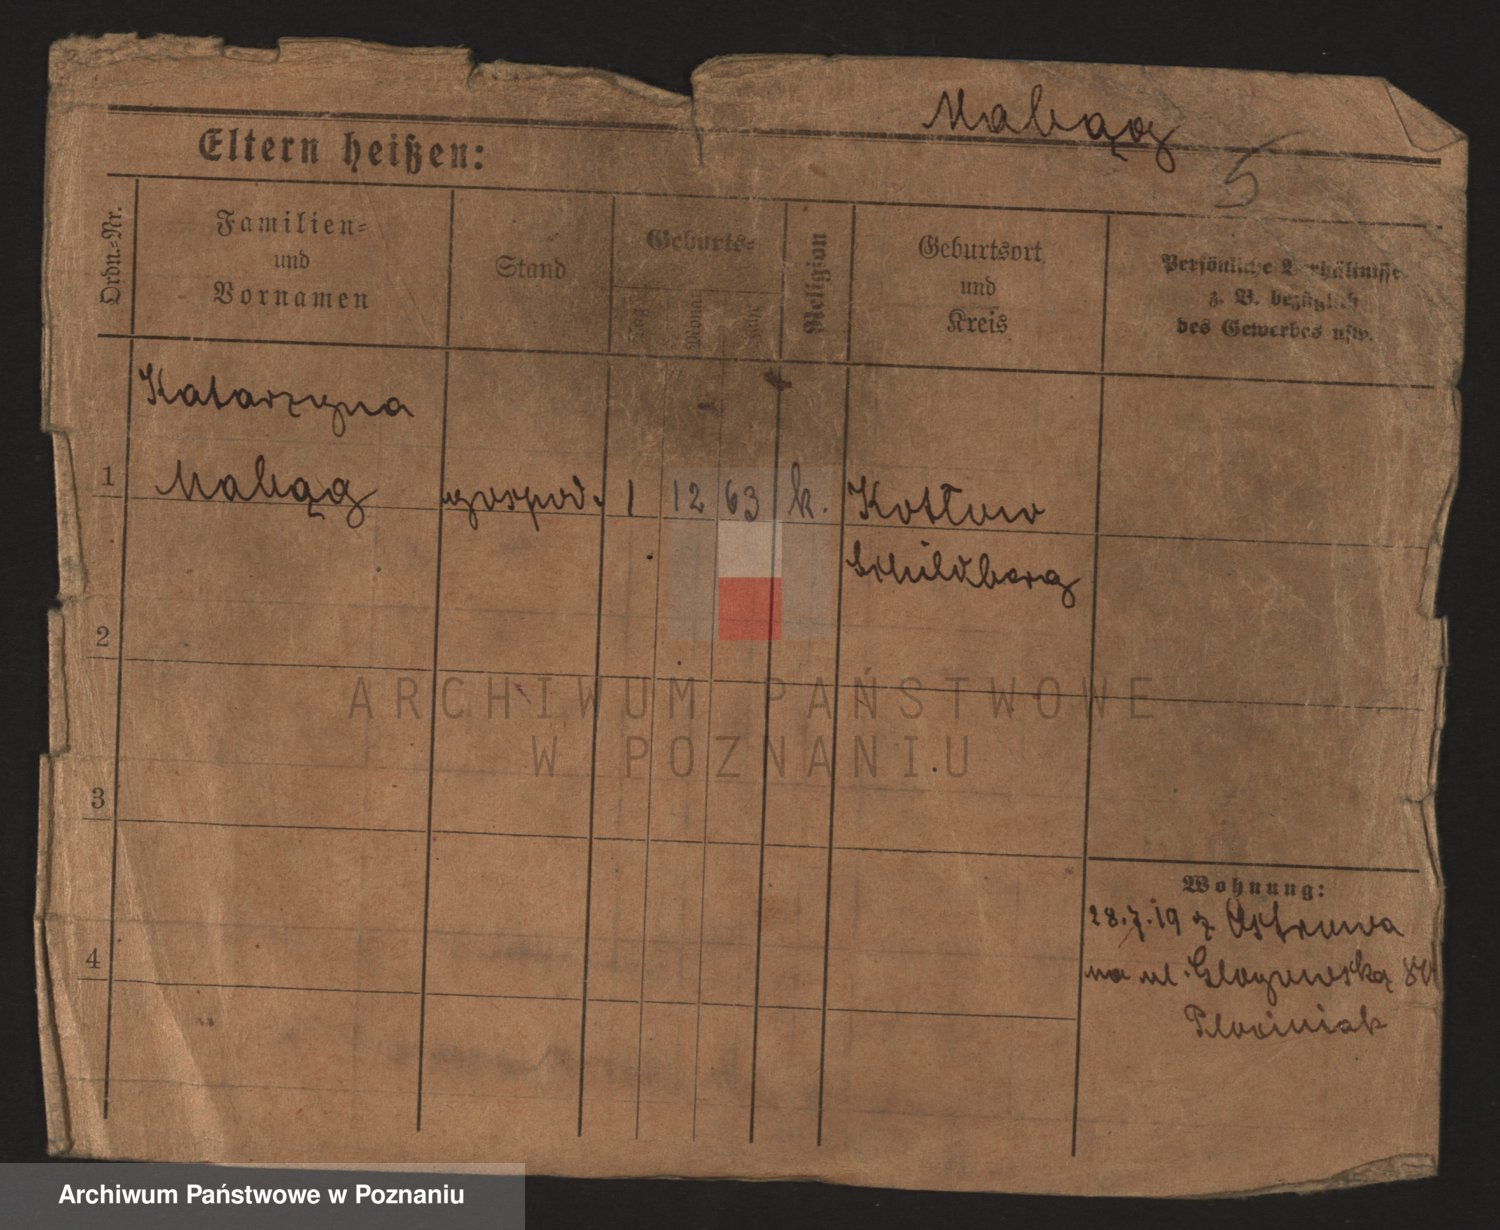 Mabąg
Eltern heißen:
5
Ordn.-Nr.
Familien-
und
Vornamen
Stand
Geburts-
Tag
Monat
Jahr
Religion
Geburtsort
und
Kreis
Persönliche Verhältnisse
z. B. bezüglich
des Gewerbes usw.
Katarzyna
1 Mabąg gospod. 1 12 63 k. Kotłow
Schildberg
2
ARCHIWUM PAŃSTWOWE
W POZNANIU
3
Wohnung:
28.7.19 z Ostrowa
4
na ul. Glogowską
Archiwum Państwowe w Poznaniu